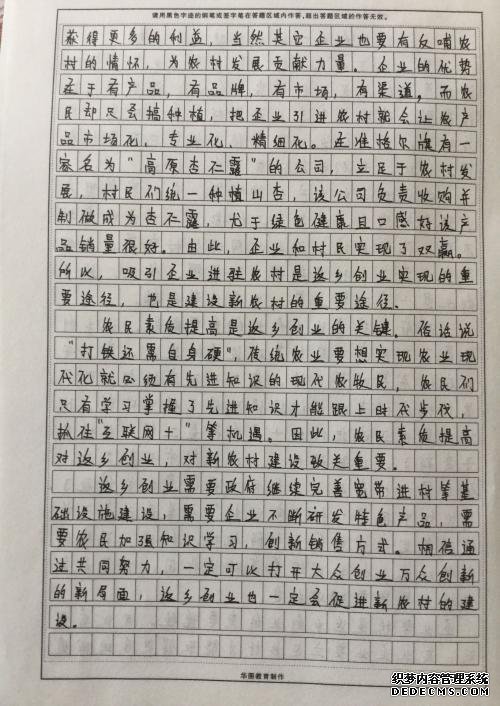 请用黑色字迹的钢笔或签字笔在答题区域内作答,超出答题区域的作答无效。
获得更多的利益，当然其它企业也要有反哺农
村的情怀，为农村发展贡献力量。企业的优势
在于有产品，有品牌，有市场，有渠道。而农
民却只会搞种植，把企业引进农村就会让农产
品市场化，专业化、精细化。在准格尔旗有一
家名为“高原杏仁露”的公司，立足于农村发
展，村民们统一种植山杏，该公司负责收购并
制做成为杏仁露，尤于绿色健康且口感好该产
品销量很好。由此，企业和村民实现了双赢。
所以，吸引企业进驻农村是返乡创业实现的重
要途径，也是建设新农村的重要途径。
农民素质提高是返乡创业的关键。俗话说
“打铁还需自身硬”，传统农业要想实现农业现
代化就必须有先进知识的现代农牧民，农民们
只有学习掌握了先进知识才能跟上时代步伐，
抓住“互联网＋”等机遇。因此，农民素质提高
对返乡创业，对新农村建设致关重要。
返乡创业需要政府继续完善宽带进村等基
础设施建设，需要企业不断研发特色产品，需
要农民加强知识学习，创新销售方式。相信通
过共同努力，一定可以打开大众创业万众创新
的新局面，返乡创业也一定会促进新农村的建
设。
华图教育制作
织梦内容管理系统
DEDECMS.COM